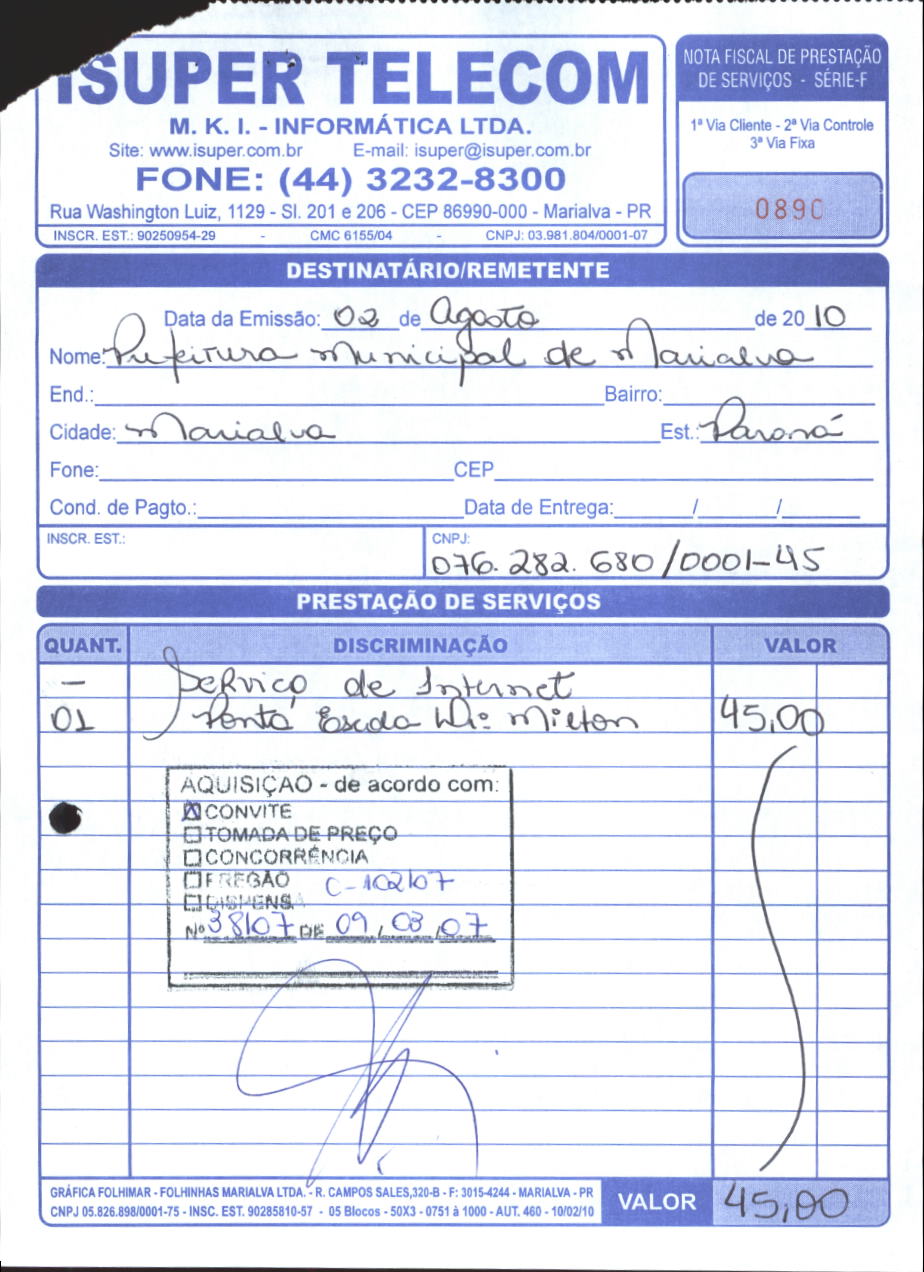 ISUPER TELECOM
M. K. I. - INFORMÁTICA LTDA.
Site: www.isuper.com.br E-mail: isuper@isuper.com.br
FONE: (44) 3232-8300
Rua Washington Luiz, 1129 - Sl. 201 e 206 - CEP 86990-000 - Marialva - PR
INSCR. EST.: 90250954-29 - CMC 6155/04 - CNPJ: 03.981.804/0001-07
NOTA FISCAL DE PRESTAÇÃO
DE SERVIÇOS - SÉRIE-F
1ª Via Cliente - 2ª Via Controle
3ª Via Fixa
0890
DESTINATÁRIO/REMETENTE
Data da Emissão: 02 de Agosto de 2010
Nome: Prefeitura Municipal de Marialva
End.: Bairro:
Cidade: Marialva Est.: Paraná
Fone: CEP
Cond. de Pagto.: Data de Entrega: / /
INSCR. EST.: CNPJ:
076.282.680/0001-45
PRESTAÇÃO DE SERVIÇOS
QUANT. DISCRIMINAÇÃO VALOR
- Serviço de Internet
01 Escola Milton 45,00
AQUISIÇÃO - de acordo com:
CONVITE
TOMADA DE PREÇO
CONCORRÊNCIA
PREGÃO C-102/07
DISPENSA
Nº 38/07 DE 09/03/07
GRÁFICA FOLHIMAR - FOLHINHAS MARIALVA LTDA. - R. CAMPOS SALES,320-B - F: 3015-4244 - MARIALVA - PR
CNPJ 05.826.898/0001-75 - INSC. EST. 90285810-57 - 05 Blocos - 50X3 - 0751 à 1000 - AUT. 460 - 10/02/10
VALOR 45,00